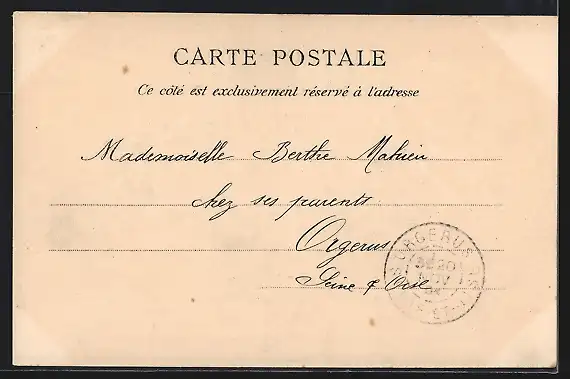 CARTE POSTALE
Ce côté est exclusivement réservé à l'adresse
Mademoiselle Berthe Mahieu
chez ses parents
Orgerus
Seine & Oise
ORGERUS
20
NOV
04